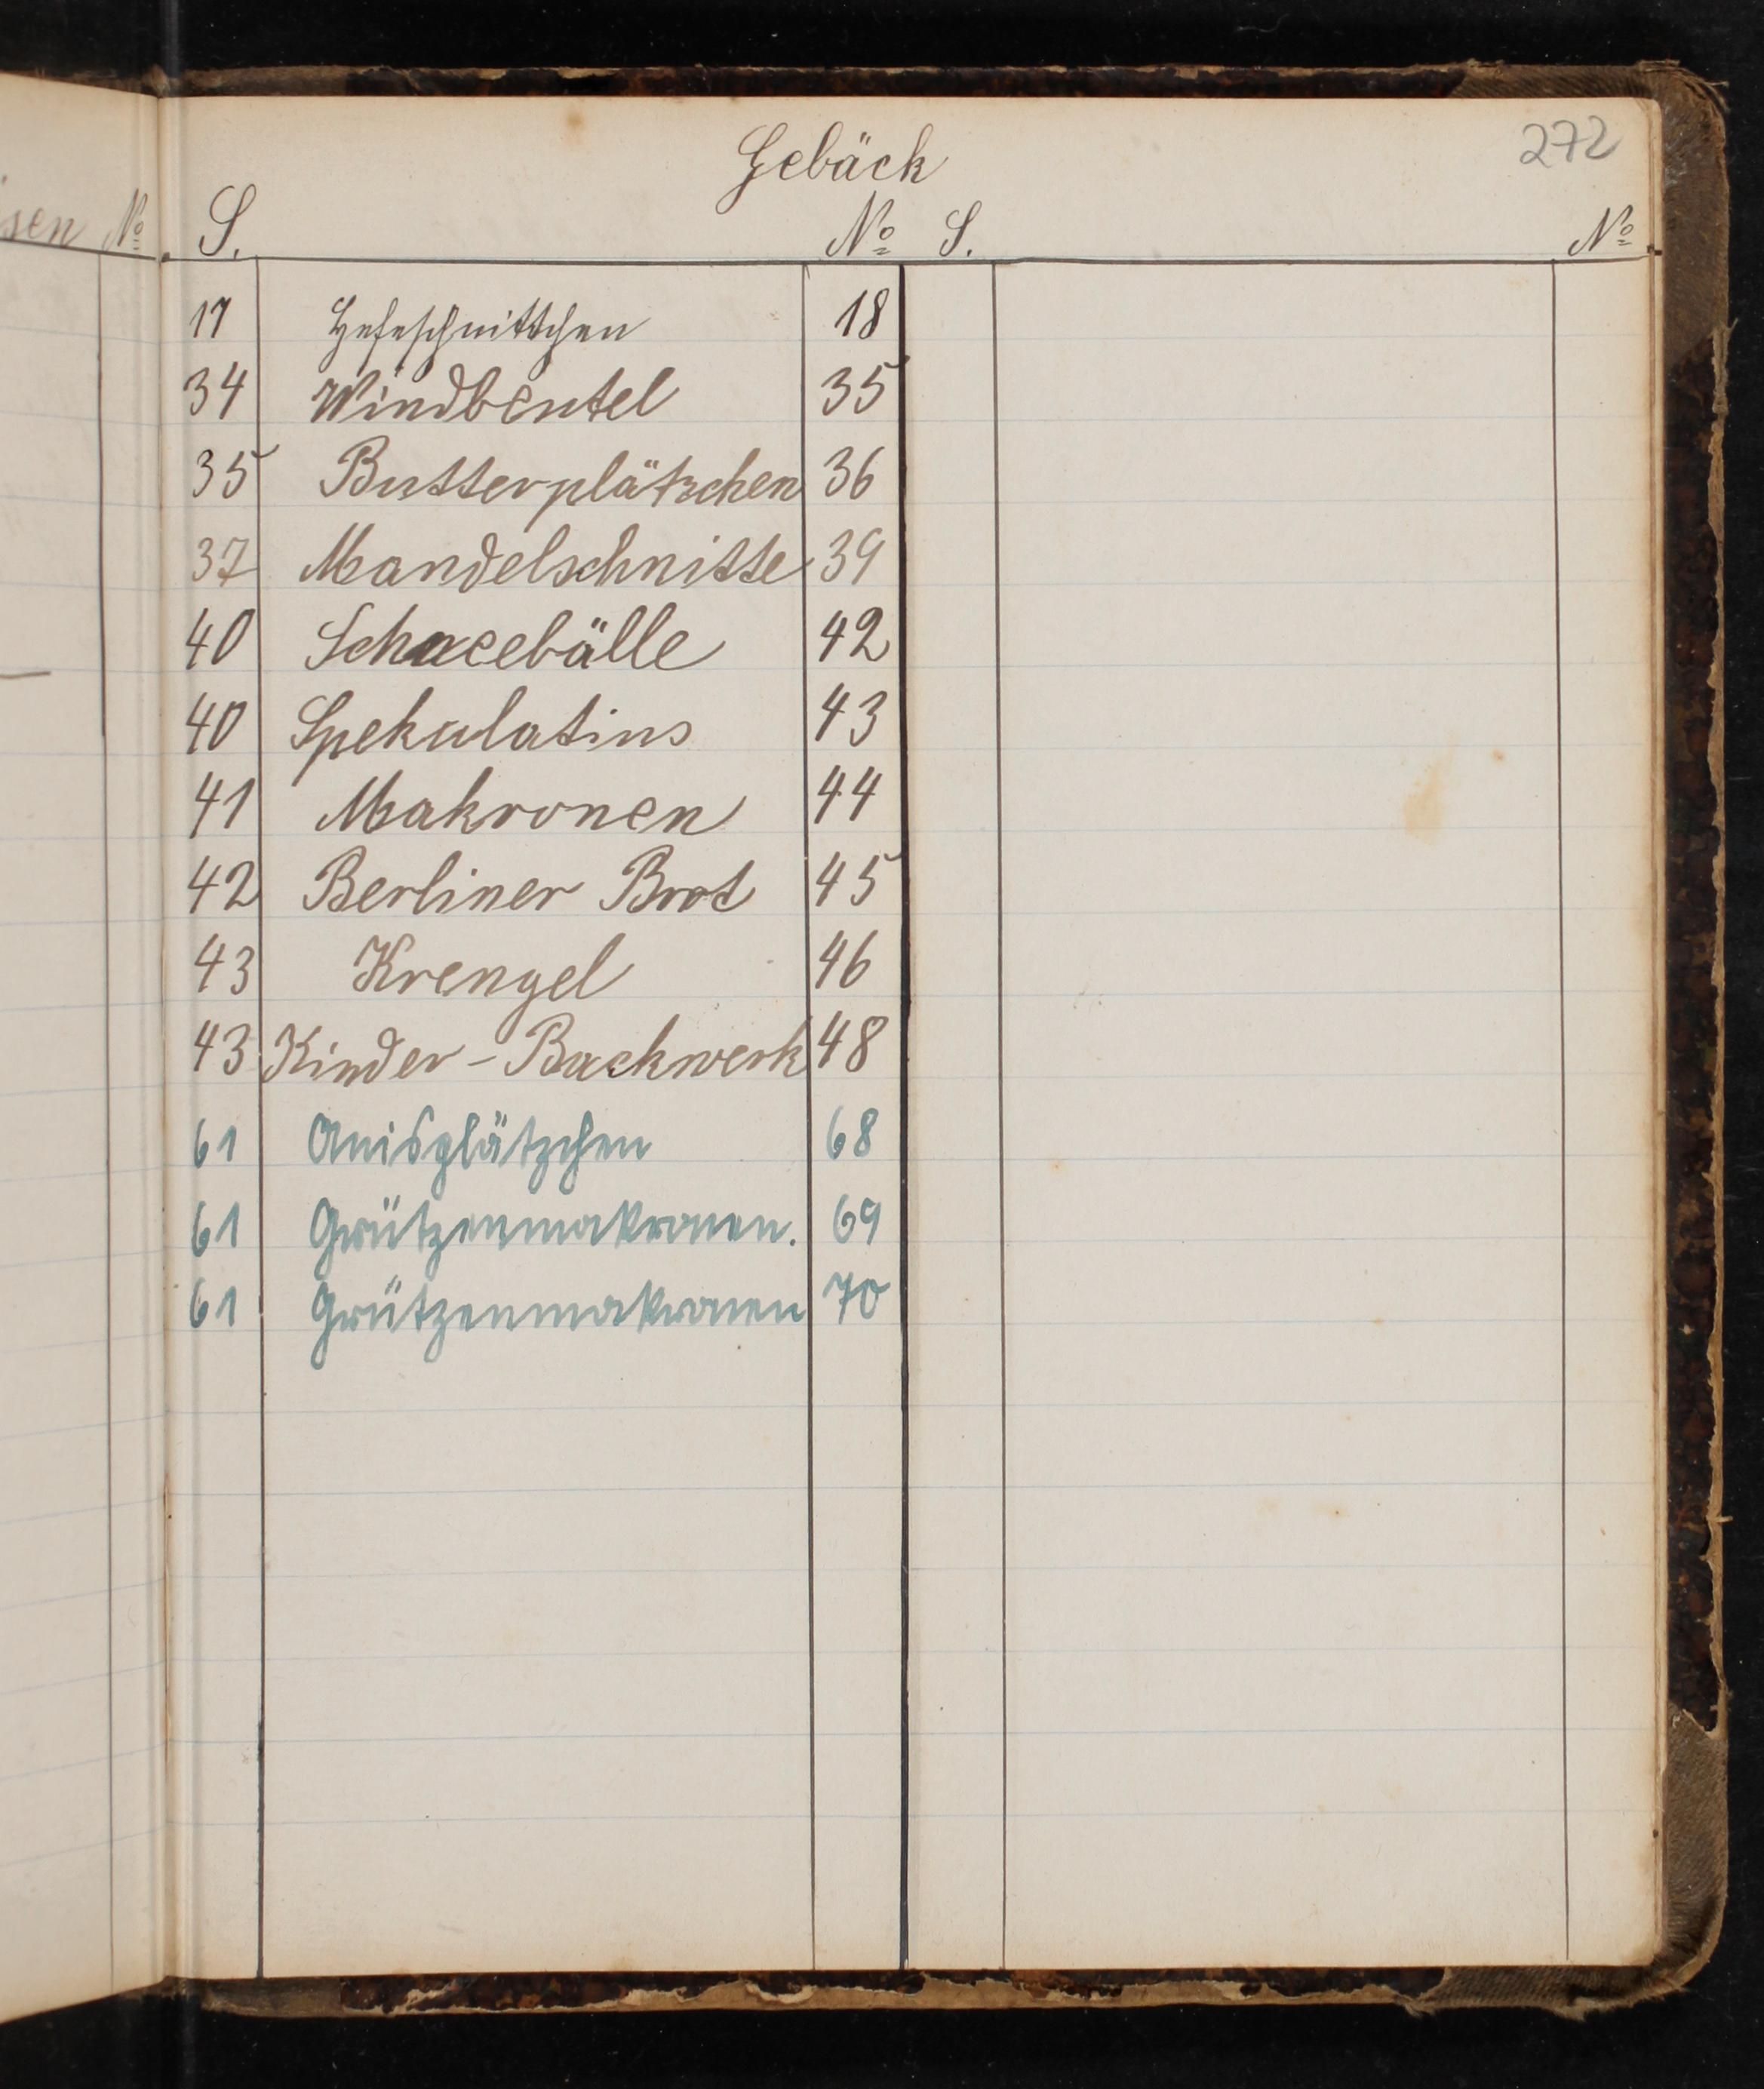 272
Gebäck
sen No
S. No S. No
17 Hefeschnittchen 18
34 Windbeutel 35
35 Butterplätzchen 36
37 Mandelschnitte 39
40 Schneebälle 42
40 Spekulatius 43
41 Makronen 44
42 Berliner Brot 45
43 Krengel 46
43 Kinder-Backwerk 48
61 Anisplätzchen 68
61 Grützenmakronen. 69
61 Grützenmakronen 70